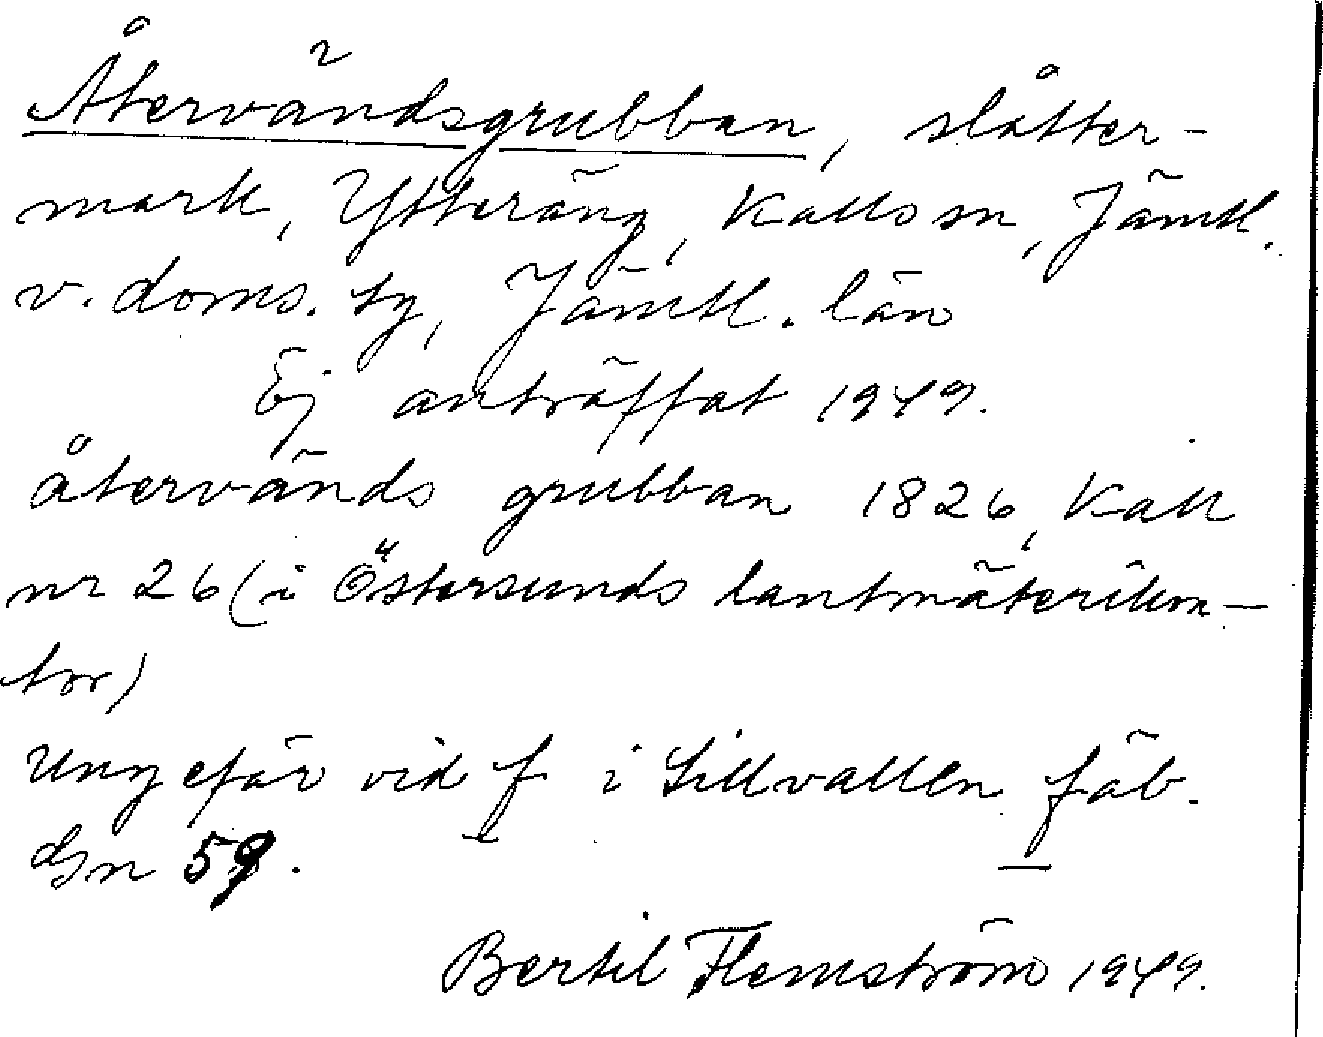 Återvändsgrubban, slåtter-
mark, Ytteräng, Kalls sn, Jämtl.
v. doms. tg, Jämtl. län
Ej anträffat 1949.
återvänds grubban 1826, Kall
nr 26 (i Östersunds lantmäterikon-
tor)
Ungefär vid f i Lillvallen fäb.
Gn 59.
Bertil Flemström 1949.